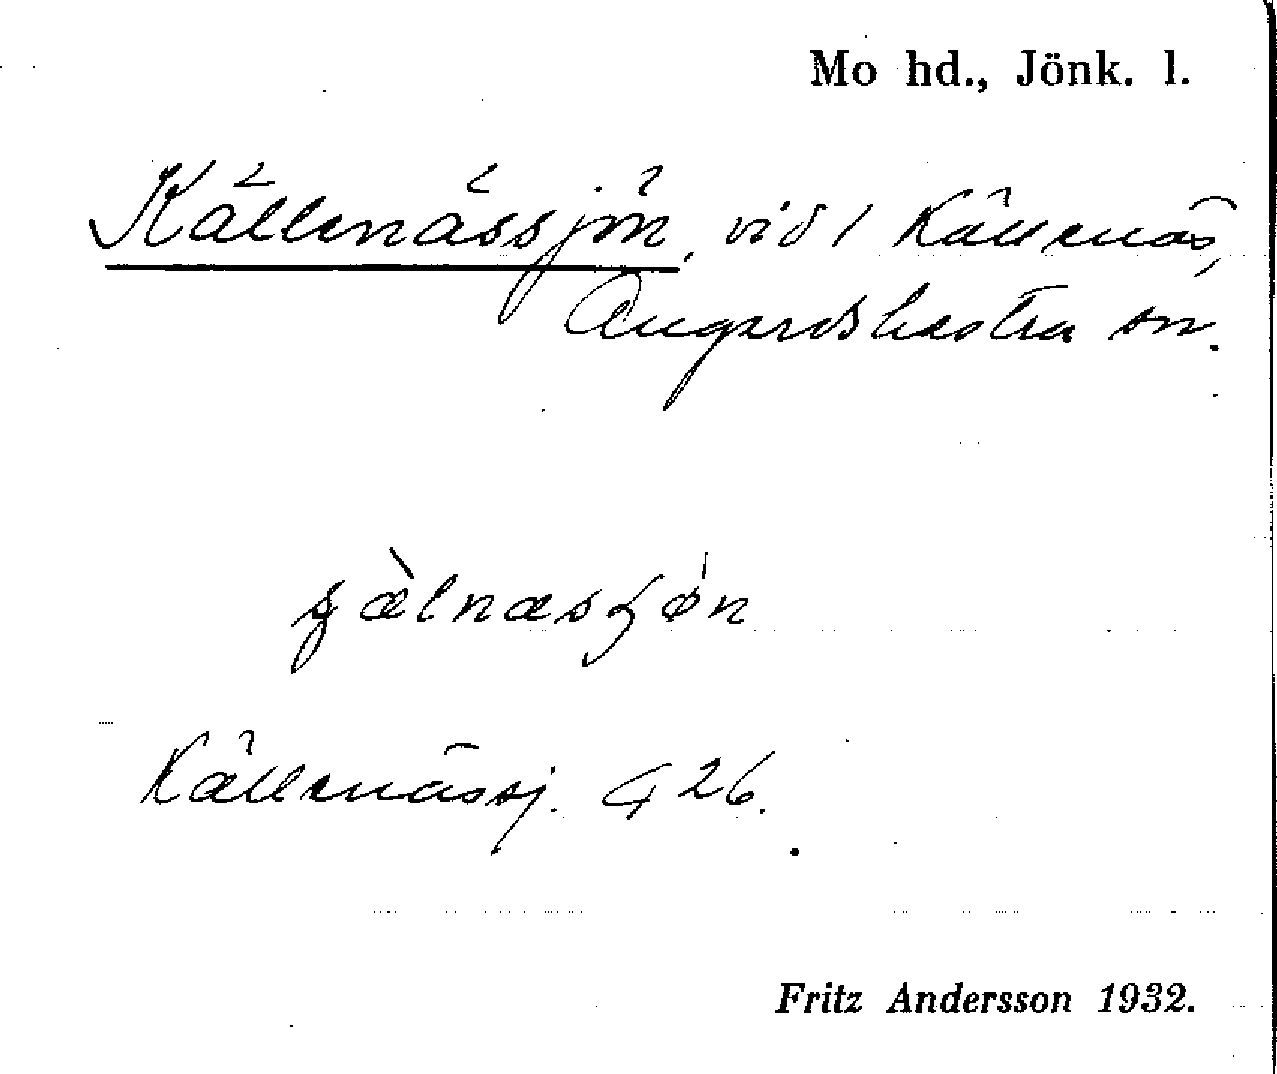 Mo hd., Jönk. l.
Källenässjön, vid / Källenäs,
Angerdshestra sn.
Källenässj. G 26.
Fritz Andersson 1932.